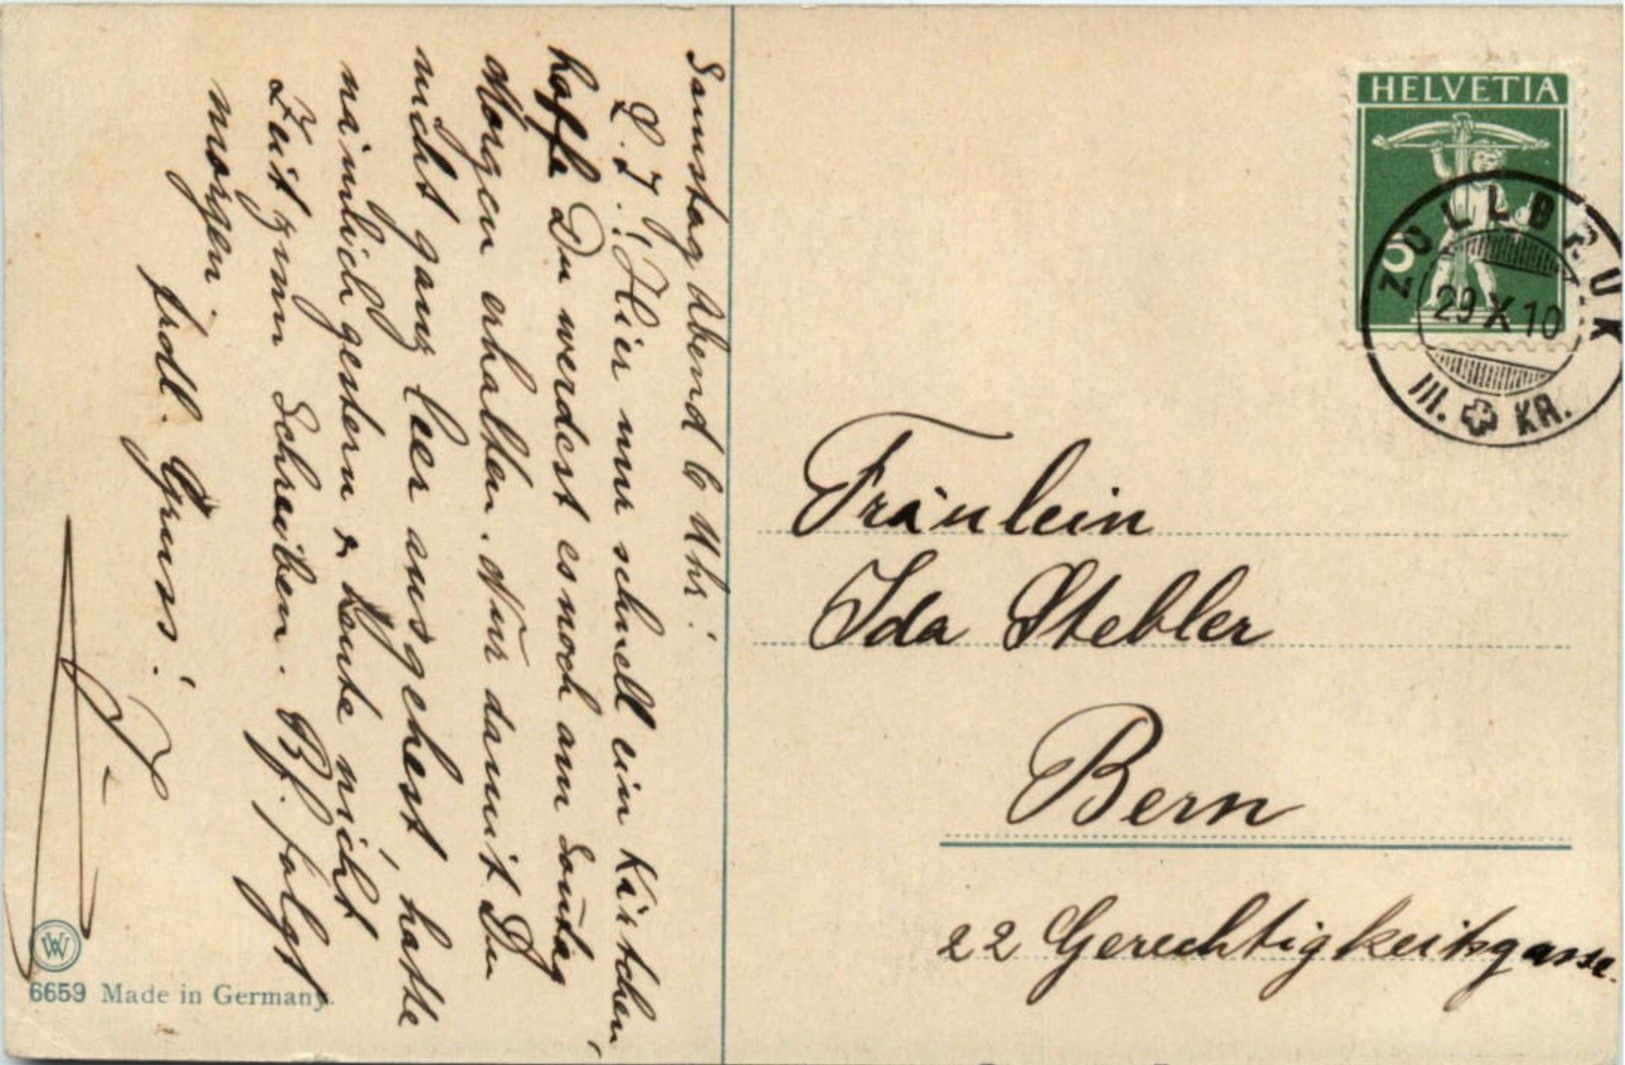 Samstag Abend 6 Uhr!
L. I.! Hier nur schnell ein Kärtchen,
hoffe Du werdest es noch am Sontag
Morgen erhalten. Nur damit Du
nicht ganz leer ausgehest, hatte
nämlich gestern & heute nicht
Zeit zum Schreiben. Bf. folgt
morgen.
frdl. Gruss!
HELVETIA
5
ZOLLBRUK
29 X 10
III. KR.
Fräulein
Ida Stebler
Bern
22 Gerechtigkeitsgasse.
WW
6659 Made in Germany.